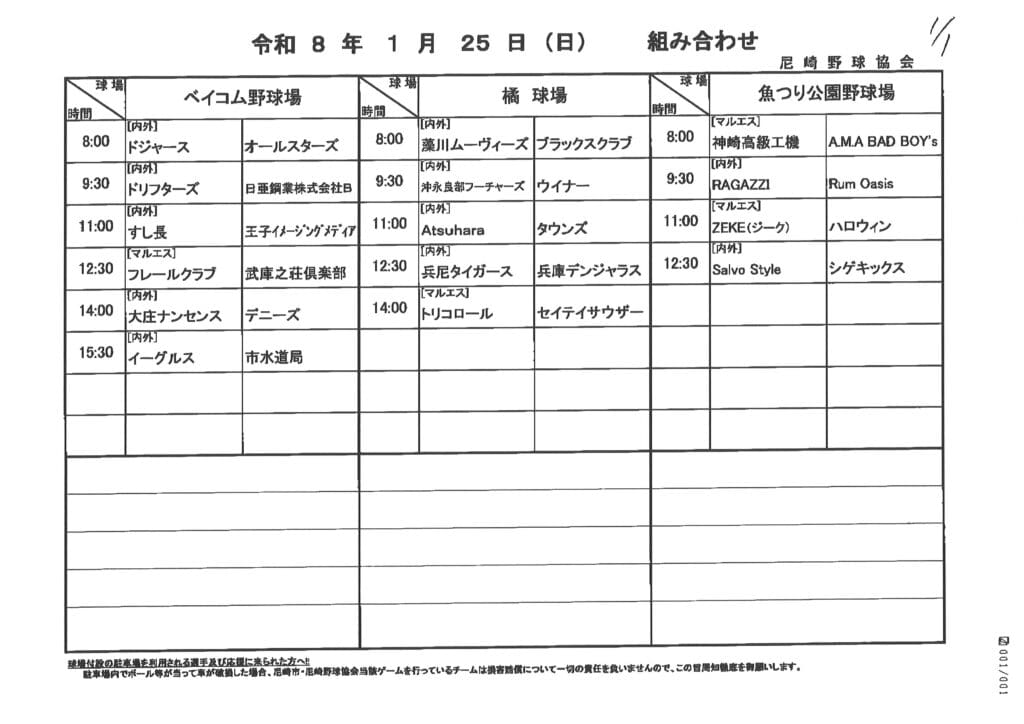 令和 8 年 1 月 25 日（日） 組み合わせ
1/1
尼崎野球協会
球場 時間 ベイコム野球場 球場 時間 橘 球場 球場 時間 魚つり公園野球場
8:00 [内外] ドジャース オールスターズ 8:00 [内外] 藻川ムーヴィーズ ブラックスクラブ 8:00 [マルエス] 神崎高級工機 A.M.A BAD BOY's
9:30 [内外] ドリフターズ 日亜鋼業株式会社B 9:30 [内外] 沖永良部フーチャーズ ウイナー 9:30 [内外] RAGAZZI Rum Oasis
11:00 [内外] すし長 王子イメージングメディア 11:00 [内外] Atsuhara タウンズ 11:00 [マルエス] ZEKE(ジーク) ハロウィン
12:30 [マルエス] フレールクラブ 武庫之荘倶楽部 12:30 [内外] 兵尼タイガース 兵庫デンジャラス 12:30 [内外] Salvo Style シゲキックス
14:00 [内外] 大庄ナンセンス デニーズ 14:00 [マルエス] トリコロール セイテイサウザー
15:30 [内外] イーグルス 市水道局
球場付設の駐車場を利用される選手及び応援に来られた方へ!!
駐車場内でボール等が当って車が破損した場合、尼崎市・尼崎野球協会当該ゲームを行っているチームは損害賠償について一切の責任を負いませんので、この旨周知徹底を御願いします。
001/001